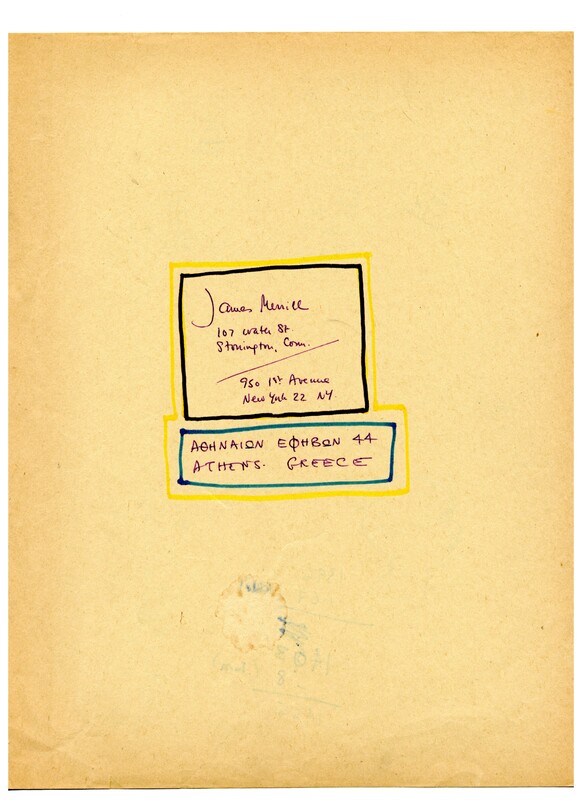 James Merrill
107 Water St.
Stonington, Conn.
950 1st Avenue
New York 22 NY.
ΑΘΗΝΑΙΩΝ ΕΦΗΒΩΝ 44
ATHENS. GREECE